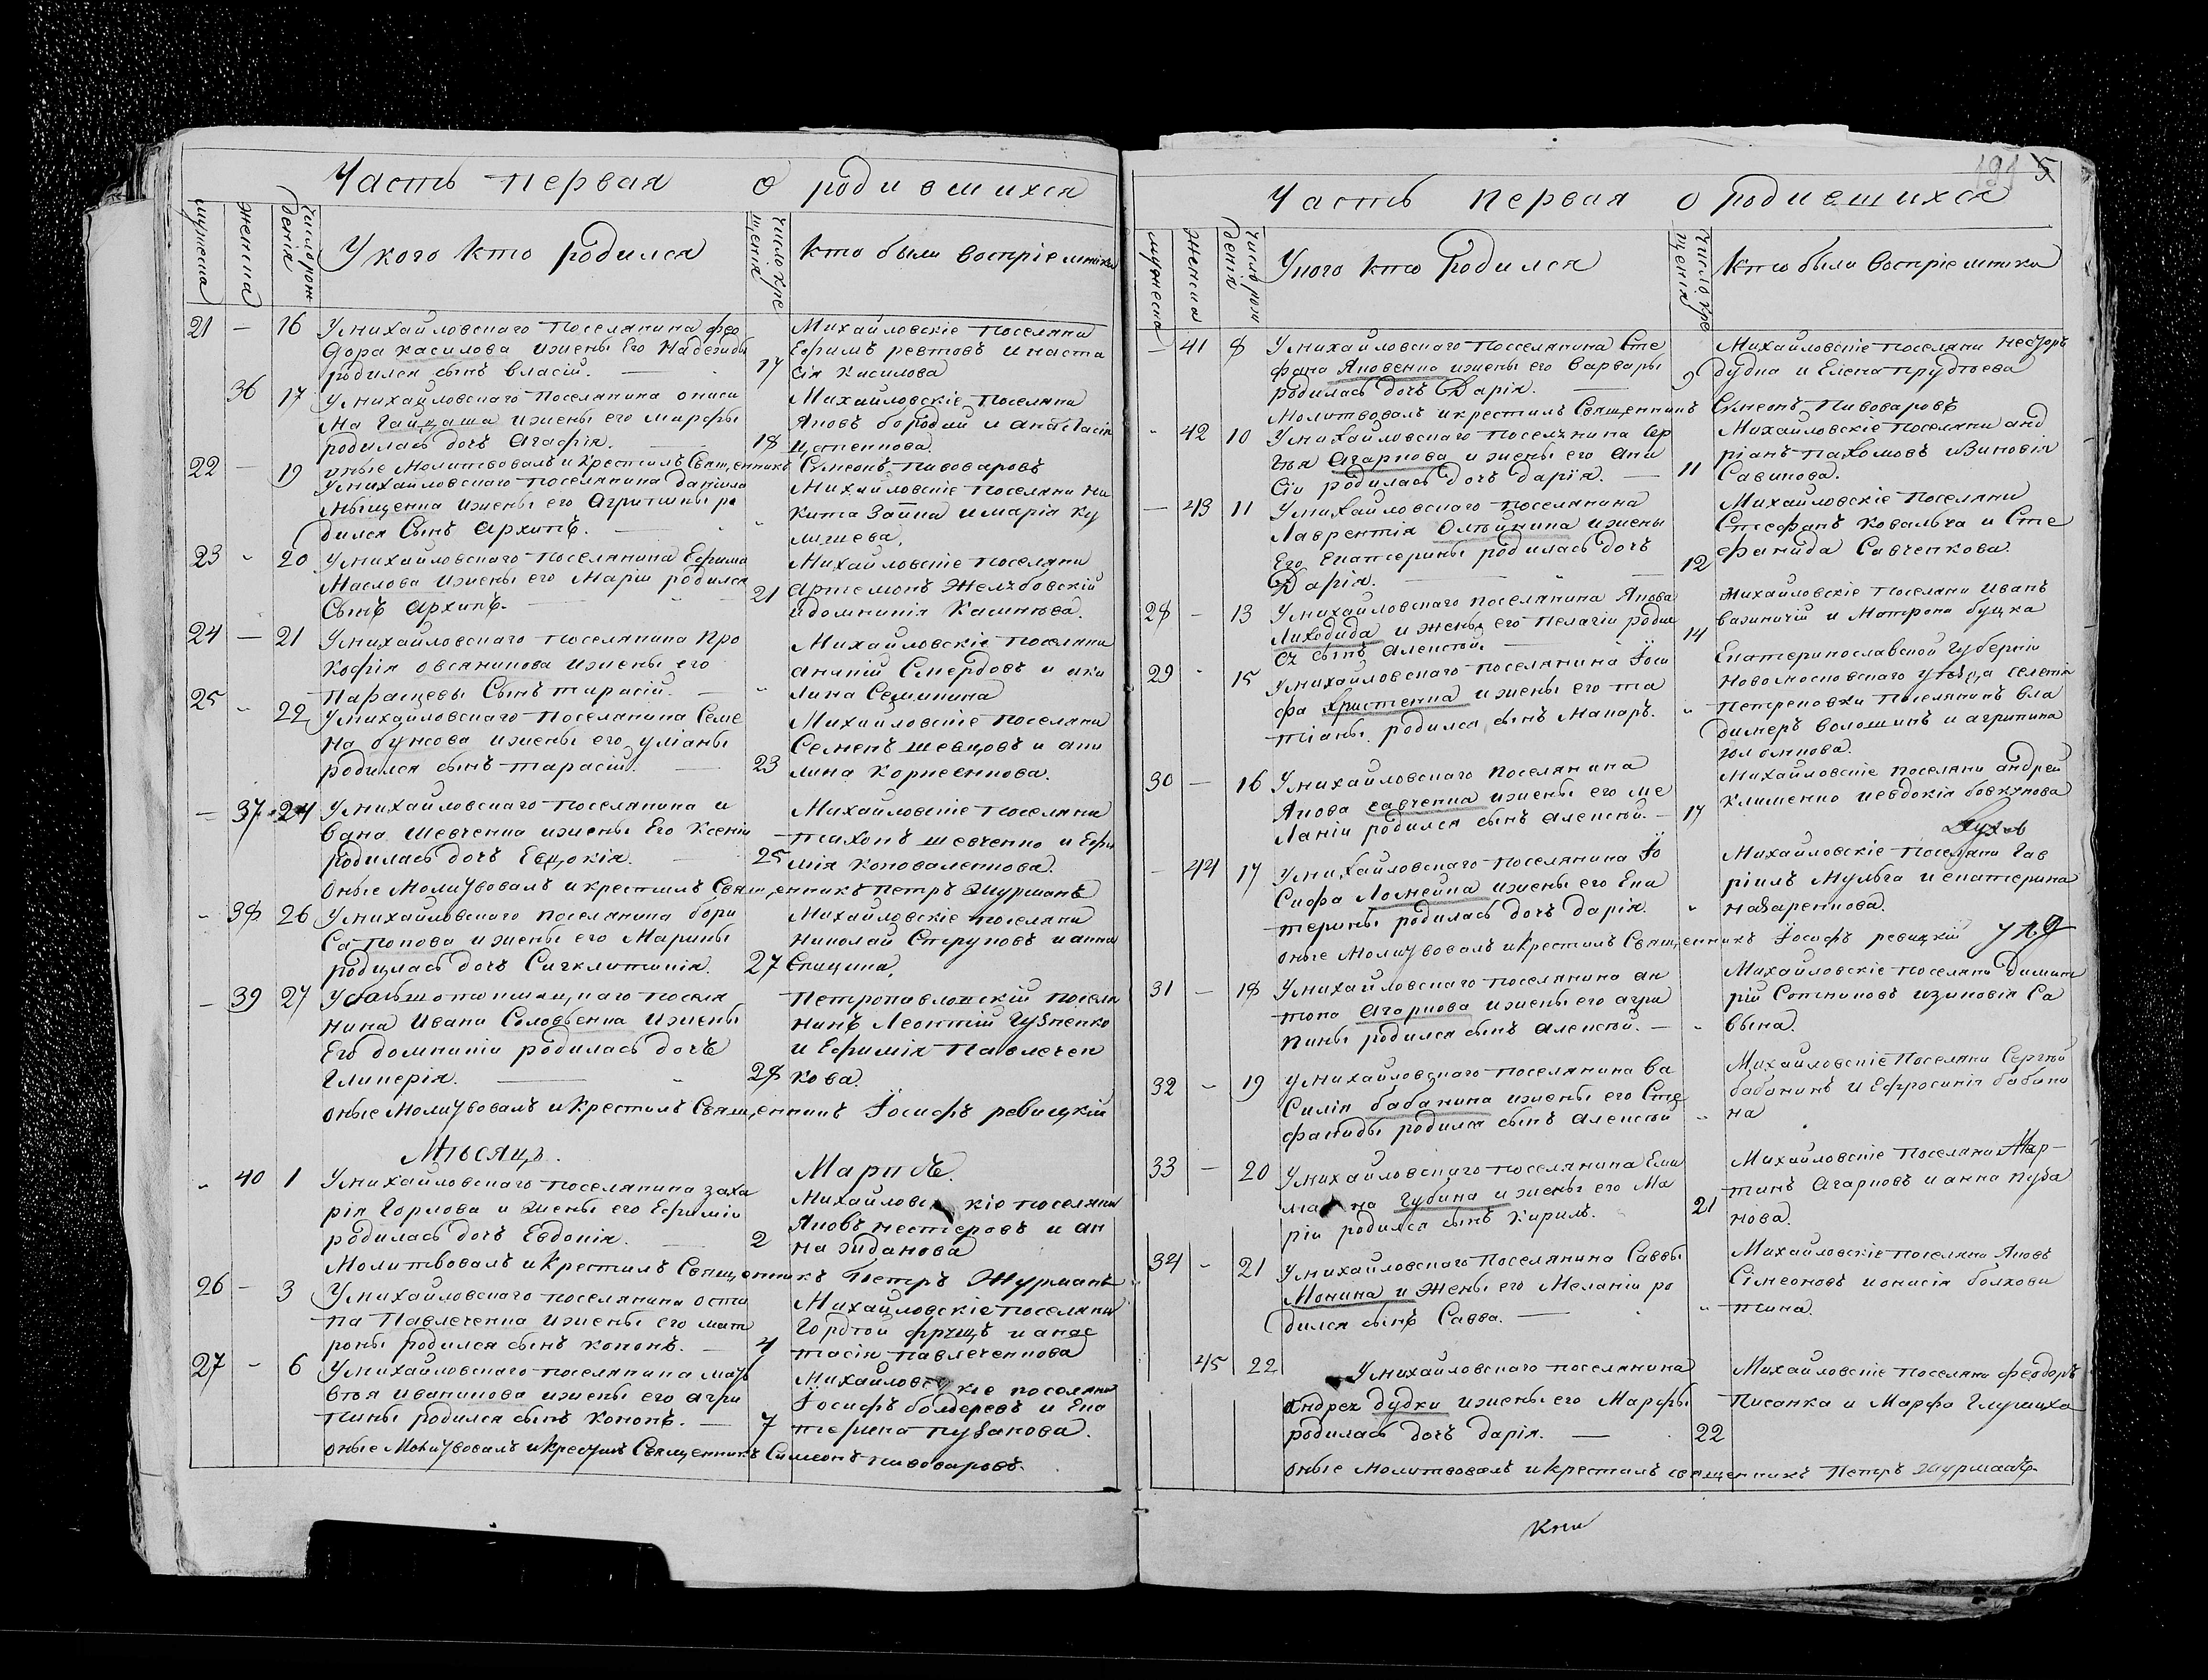 Часть первая о родившихся
мужеска
женска
Число рож
денія
У кого кто родился
Число кре
щенія
кто были воспріемники
21 — 16 У михайловскаго поселянина фео
дора касилова и жены Его Надежды
родился сынъ власій. — 17
Михайловскіе поселяни
Ефимъ ревтовъ и наста
сія Касилова
36 17 У михайловскаго поселянина ониси
ма Гайдаша и жены его марфы
родилась дочъ Агафія. — 18
Михайловскіе поселяни
Яковъ бородий и анастасія
оные Молитвовалъ и Крестилъ Священникъ Симеонъ пивоваровъ
22 — 19 У михайловскаго поселянина даніила
и жены его Агрипины ро
дился Сынъ Архипъ. — "
Михайловскіе поселяни ни
кита Заика и марія ку
23 - 20 У михайловскаго поселянина Ефима
Маслова и жены его Маріи родился
Сынъ Архипъ. — 21
Михайловскіе поселяни
Артемонъ Желѣбовскій
и домникія Касилова.
24 — 21 У михайловскаго поселянина Про
кофія овсяникова и жены его
Парасцевы Сынъ тарасій. — "
Михайловскіе поселяни
ананій Смердовъ и аку
лина Семикина
25 - 22 У михайловскаго поселянина Семе
на бужова и жены его уліаны
родился сынъ тарасій. — 23
Михайловскіе поселяни
Семенъ шевцовъ и аку
лина Корнеенкова.
— 37 24 У михайловскаго поселянина и
вана Шевченка и жены Его Ксеніи
родилась дочъ Евдокія. — 25
Михайловскіе поселяни
тихонъ шевченко и Ефи
мія коноваленкова.
Оные Молитвовалъ и крестилъ Священникъ петръ Журманъ
- 38 26 У михайловскаго поселянина бори
са попова и жены его Марины
родилась дочъ Сигклитикія. 27
Михайловскіе поселяни
Николай Струковъ и анна
Спицина.
— 39 27 У большотокмацкаго поселя
нина Ивана Соловьенка и жены
Его домникіи родилась дочъ
Гликерія. — 28
Петропавловскій поселя
нинъ Леонтій Гузненко
и Ефимія Павлечен
кова.
оные Молитвовалъ и Крестилъ Священникъ Іосифъ ревицкій
Мѣсяцъ. Мартъ.
- 40 1 У михайловскаго поселянина заха
рія Горлова и жены его Ефиміи
родилась дочъ Евдокія. — 2
Михайловскіе поселяни
Яковъ нестеровъ и ан
на жданова
Молитвовалъ и крестилъ Священникъ Петръ Журманъ
26 — 3 У михайловскаго поселянина оста
па Павлеченка и жены его мат
роны родился сынъ кононъ. — 4
Михайловскіе поселяни
Гордѣй фрущъ и анас
тасія павлеченкова
27 - 6 У михайловскаго поселянина мат
вѣя иваникова и жены его агри
пины родился сынъ кононъ. — 7
Михайловскіе поселяни
Іосифъ болдеревъ и Ека
терина пузанова.
оные Молитвовалъ и крестилъ Священникъ Симеонъ пивоваровъ.
191 5
Часть первая о родившихся
мужеска
женска
Число рож
денія
У кого кто Родился
Число кре
щенія
Кто были воспріемники
— 41 8 У михайловскаго поселянина Сте
фана Яковенка и жены его варвары
родилась дочъ Дарія. — 9
Михайловскіе поселяни нестеръ
дудка и Елена прудкоева
Молитвовалъ и крестилъ Священникъ Симеонъ Пивоваровъ
- 42 10 У михайловскаго поселянина Сер
гѣя Агаркова и жены его Ани
сіи родилась дочъ дарія. — 11
Михайловскіе поселяни анд
ріанъ пахомовъ и Зиновія
Савикова.
— 43 11 У михайловскаго поселянина
Лаврентія Олѣйника и жены
Его Екатерины родилась дочъ
Дарія. — 12
Михайловскіе поселяни
Стефанъ Ковальча и Сте
фанида Савченкова.
28 - 13 У михайловскаго поселянина Якова
Лиходида и жены его пелагіи роди
ся сынъ алексѣй. 14
Михайловскіе поселяни Иванъ
важничій и Матрона буцка
29 - 15 У михайловскаго поселянина Іоси
фа Христенка и жены его та
тіаны родился сынъ Макаръ. "
Екатеринославской Губерніи
Новомосковскаго уѣзда селенія
петриковки поселянинъ вла
димеръ волошинъ и агрипина
30 — 16 У михайловскаго поселянина
Якова савченка и жены его ме
ланіи родился сынъ алексѣй. — 17
Михайловскіе поселяни андрей
Клименко и евдокія бовкунова
— 44 17 У михайловскаго поселянина Іо
сифа Ломейка и жены его Ека
терины родилась дочъ дарія. "
Михайловскіе поселяни Гав
ріилъ Мульга и екатерина
назаренкова.
оные Молитвовалъ и крестилъ Священникъ Іосифъ ревицкій
31 — 18 У михайловскаго поселянина ан
тона Агаркова и жены его агри
пины родился сынъ алексѣй. — "
Михайловскіе поселяни димит
рій Сотниковъ и зиновія Са
вына.
32 - 19 У михайловскаго поселянина ва
силія бабанина и жены его Сте
фаниды родился сынъ алексѣй "
Михайловскіе поселяни Сергѣй
бабанинъ и Ефросинія бабани
на
33 — 20 У михайловскаго поселянина Еми
ліана Губина и жены его Ма
ріи родился сынъ Кирилъ. 21
Михайловскіе поселяни Мар-
тинъ Агарковъ и анна пуза
нова.
34 - 21 У михайловскаго поселянина Саввы
Мокина и жены его Меланіи ро
дился сынъ Савва. — "
Михайловскіе поселяни Яковъ
Сімеоновъ и онисія болхови
тина.
45 22 У михайловскаго поселянина
Андрея дудки и жены его Марфы
родилась дочъ дарія. — 22
Михайловскіе поселяни феодоръ
Писанка и Марфа Глушиха
оные молитвовалъ и крестилъ священникъ Петръ Журманъ